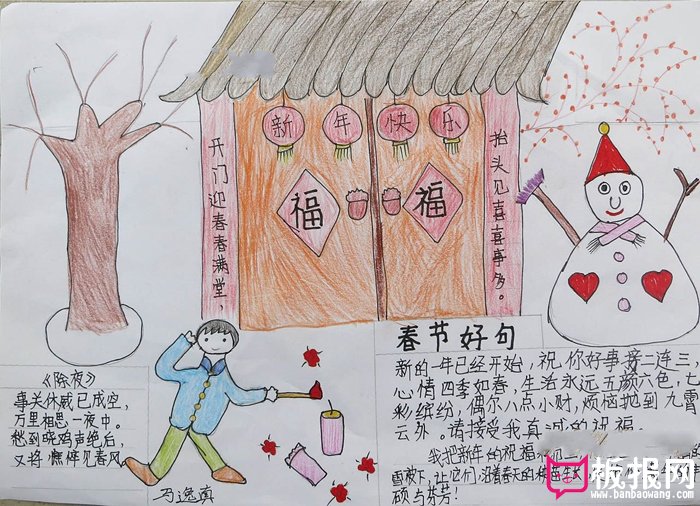 新年快乐
开门迎春春满堂，
抬头见喜喜事多。
福
福
《除夜》
事关休戚已成空，
万里相思一夜中。
愁到晓鸡声绝后，
又将憔悴见春风。
春节好句
新的一年已经开始，祝你好事接二连三，
心情四季如春，生活永远五颜六色，七
彩缤纷，偶尔八点小财，烦恼抛到九霄
云外。请接受我真诚的祝福。
我把新年的祝福
雪被下，让它们沿着春天的
硕与芬芳！
马逸真
板报网
www.banbaowang.com